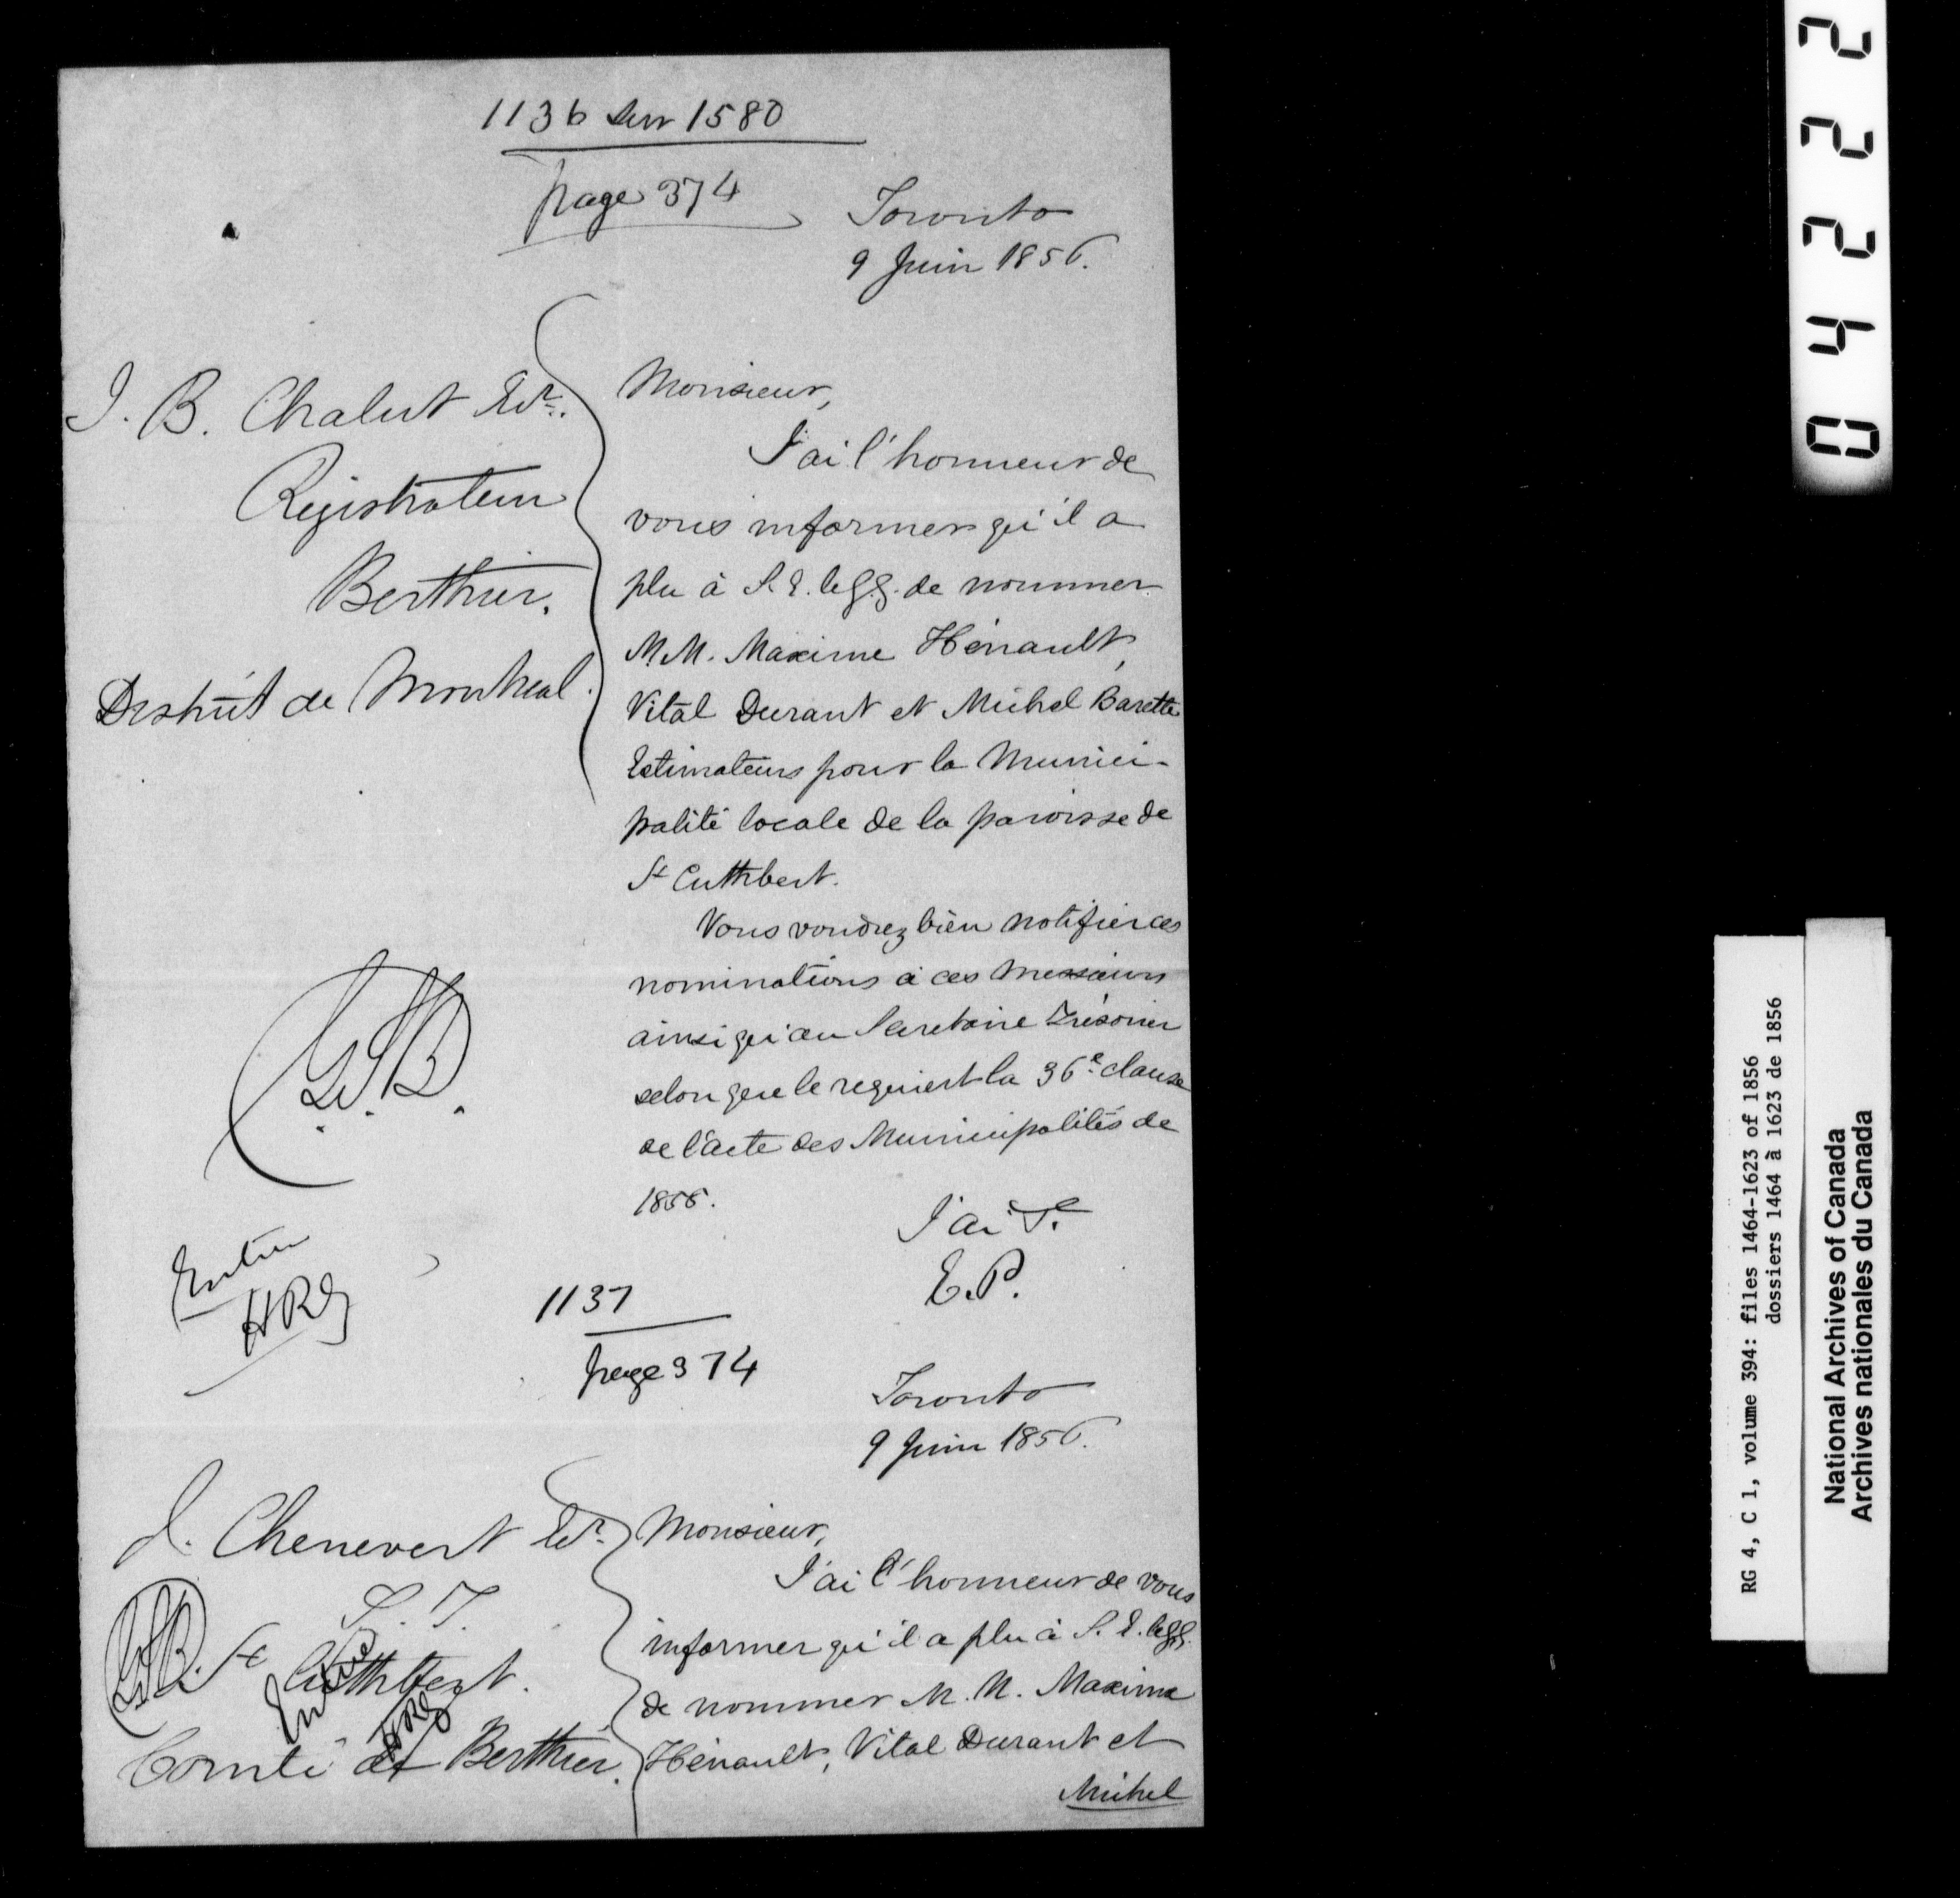 1136 sur 1580
page 374
Toronto
9 Juin 1856.
J. B. Chalut Ecr.
Registrateur
Berthier.
District de Montreal.
Monsieur,
J'ai l'honneur de
vous informer qu'il a
plu à S. E. le G.G. de nommer
M.M. Maxime Hénault,
Vital Durant et Michel Barette
Estimateurs pour la Munici-
palité locale de la paroisse de
St Cuthbert.
Vous voudrez bien notifier ces
nominations à ces messieurs
ainsi qu'au Secretaire Trésorier
selon que le requiert la 36e clause
de l'acte des Municipalités de
1855.
J'ai &.
E.P.
Entré
1137
page 374
Toronto
9 Juin 1856.
J. Chenevert Ecr.
S. T.
St Cuthbert.
Comté de Berthier.
Entré
Monsieur,
J'ai l'honneur de vous
informer qu'il a plu à S. E. le GG.
de nommer M. M. Maxime
Hénault, Vital Durant et
Michel
RG 4, C 1, volume 394: files 1464-1623 of 1856
dossiers 1464 à 1623 de 1856
National Archives of Canada
Archives nationales du Canada
04222